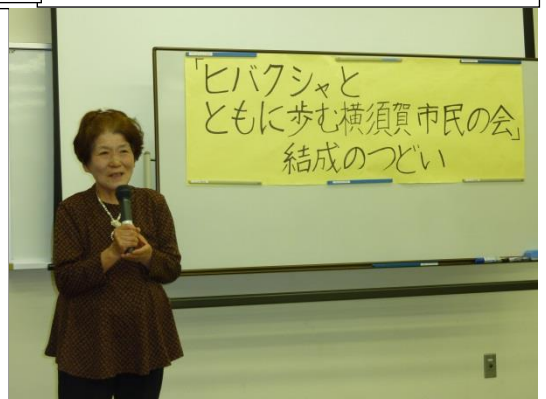 「ヒバクシャと
ともに歩む横須賀市民の会」
結成のつどい